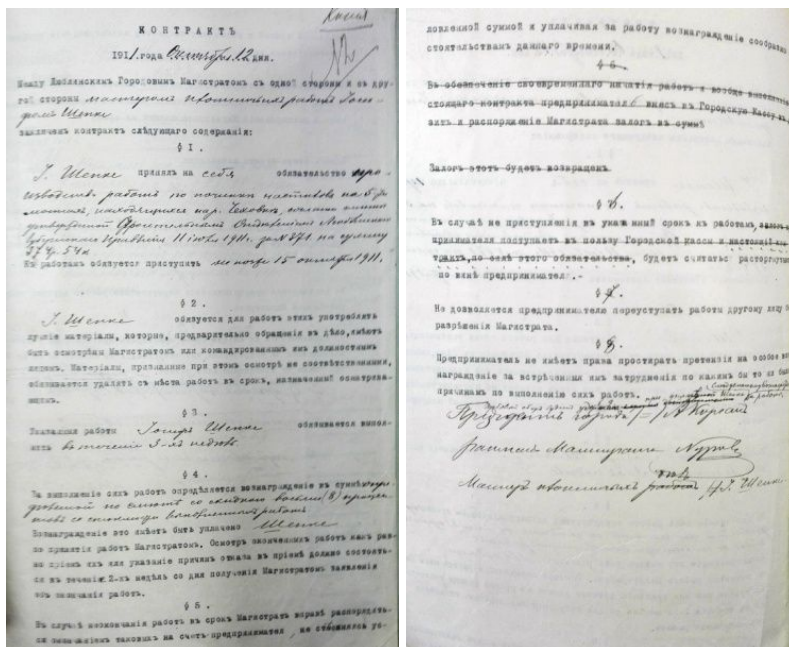 Копия
КОНТРАКТЪ
1911 года Октября 12 дня.
Между Люблинскимъ Городовымъ Магистратомъ съ одной стороны и съ дру-
гой стороны мастеромъ работъ Іоси-
фомъ Шенке
заключенъ контрактъ слѣдующаго содержанія:
§ 1.
І. Шенке принялъ на себя обязательство про-
изводство работъ по починкѣ на 5 до-
махъ, находящихся согласно смѣтѣ
утвержденной Строительнымъ Отдѣленіемъ Люблинскаго
Губернскаго Правленія 11 іюля 1911 г. за № 871 на сумму
Къ работамъ обязуется приступить не позже 15 октября 1911.
§ 2.
І. Шенке обязуется для работъ этихъ употреблять
лучшіе матеріалы, которые, предварительно обращенія въ дѣло, имѣютъ
быть осмотрѣны Магистратомъ или командированнымъ имъ должностнымъ
лицомъ. Матеріалы, признанные при этомъ осмотрѣ не соотвѣтственными,
обязывается удалять съ мѣста работъ въ срокъ, назначенный осматрива-
ющимъ.
§ 3.
Указанныя работы Іосифъ Шенке обязывается выпол-
нить въ теченіе 3-хъ недѣль
§ 4.
За выполненіе сихъ работъ опредѣляется вознагражденіе въ суммѣ
по смѣтѣ со скидкою восьми (8) процен-
товъ со стоимости выполненныхъ работъ
Вознагражденіе это имѣетъ быть уплачено Шенке
по принятіи работъ Магистратомъ. Осмотръ оконченныхъ работъ какъ рав-
но пріемъ ихъ или указаніе причинъ отказа въ пріемѣ должно состоять-
ся въ теченіи 2-хъ недѣль со дня полученія Магистратомъ заявленія
объ окончаніи работъ.
§ 5.
Въ случаѣ неокончанія работъ въ срокъ Магистратъ вправѣ распорядить-
ся окончаніемъ таковыхъ на счетъ предпринимател , не стѣсняясь ус-
ловленной суммой и уплачивая за работу вознагражденіе сообразно
стоятельствамъ даннаго времени.
§ 6.
Въ обезпеченіе своевременнаго начатія работъ и вообще выполненія
стоящаго контракта предпринимателъ внесъ въ Городскую Кассу въ
витъ и распоряженіе Магистрата залогъ въ суммѣ
Залогъ этотъ будетъ возвращенъ
§ 6.
Въ случаѣ не приступленія въ указанный срокъ къ работамъ, залогъ
принимателя поступаетъ въ пользу Городской кассы и настоящій кон-
трактъ, по силѣ этого обязательства, будетъ считаться расторгнутымъ
по винѣ предпринимателя.-
§ 7.
Не дозволяется предпринимателю переуступать работы другому лицу безъ
разрѣшенія Магистрата.
§ 8.
Предприниматель не имѣетъ права простирать претензія на особое воз-
награжденіе за встрѣченныя имъ затрудненія по какимъ бы то ни было
причинамъ по выполненію сихъ работъ.
Президентъ города /-/
Магистрата
Мастеръ работъ /-/ І. Шенке